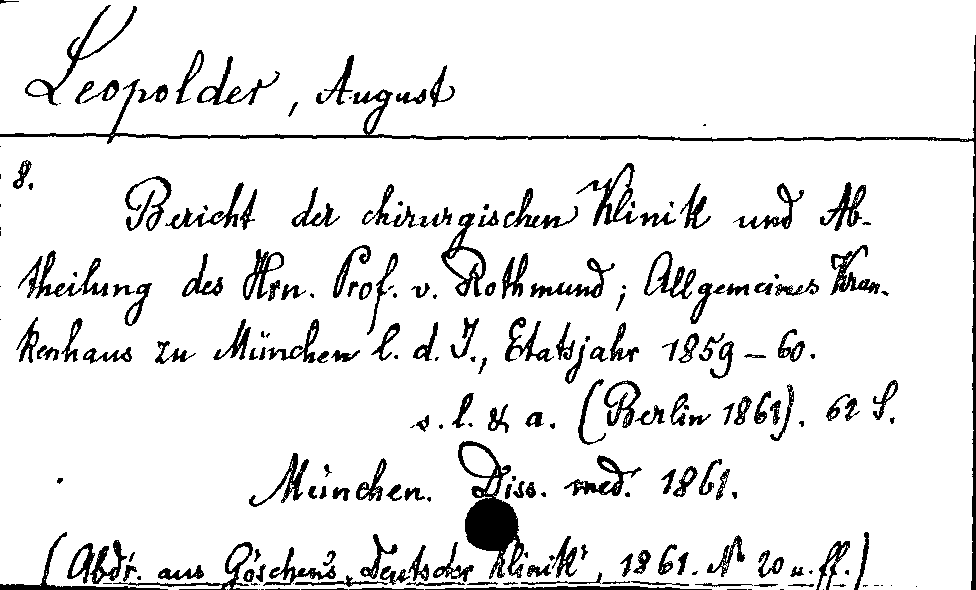 Leopolder, August
8.
Bericht der chirurgischen Klinik und Ab-
theilung des Hrn. Prof. v. Rothmund; Allgemeines Kran-
kenhaus zu München l. d. I., Etatsjahr 1859-60.
s. l. & a. (Berlin 1861). 62 S.
München. Diss. med. 1861.
(Abdr. aus Göschen's "Deutscher Klinik", 1861. No 20 u. ff.)